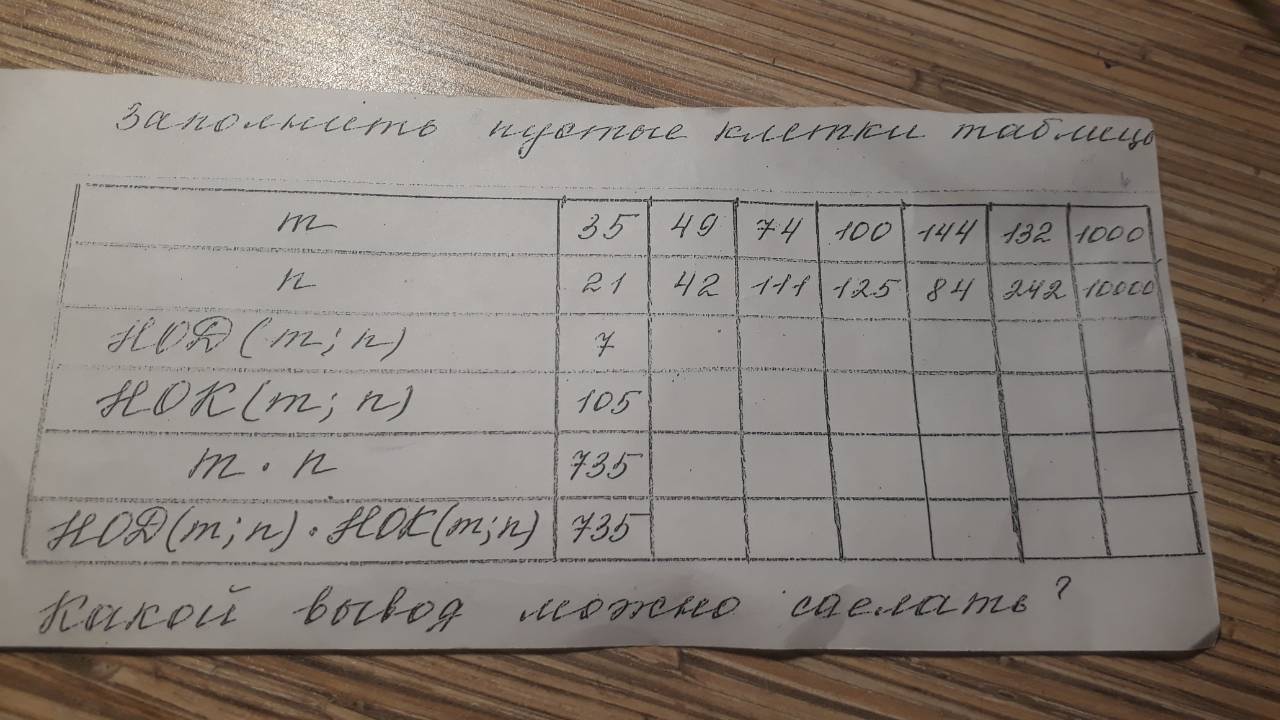 Заполнить пустые клетки таблицы
m 35 49 74 100 144 132 1000
n 21 42 111 125 84 242 10000
НОД (m; n) 7
НОК (m; n) 105
m · n 735
НОД(m; n) · НОК(m; n) 735
Какой вывод можно сделать?